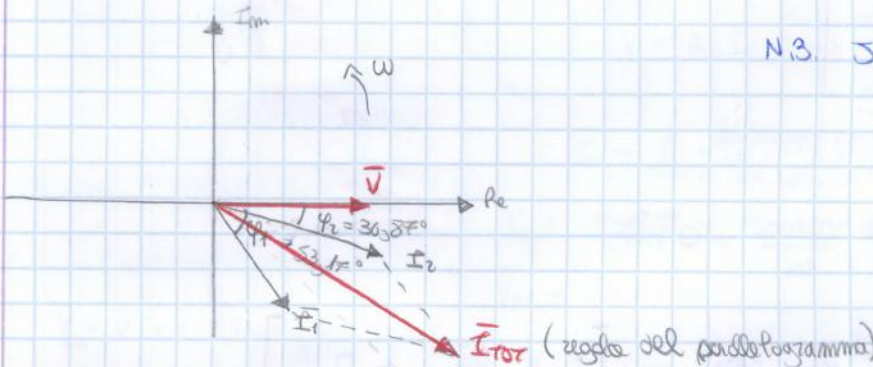 Im
N.B.
ω
V̅
Re
φ₂ = 36,87°
φ₁ = 53,17°
I₂
I̅₁
I̅TOT (regola del parallelogramma)